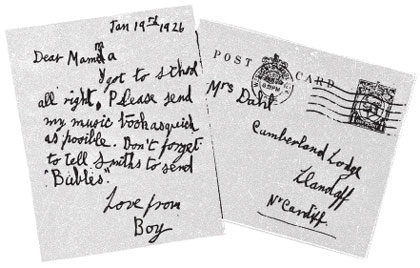 Jan 19th 1926
Dear Mama
I got to school
all right, Please send
my music book as quick
as posible. Don't forget
to tell Smiths to send
"Bubles".
Love from
Boy
POST CARD
Mrs Dahl
Cumberland Lodge
Llandaff
Nr Cardiff.